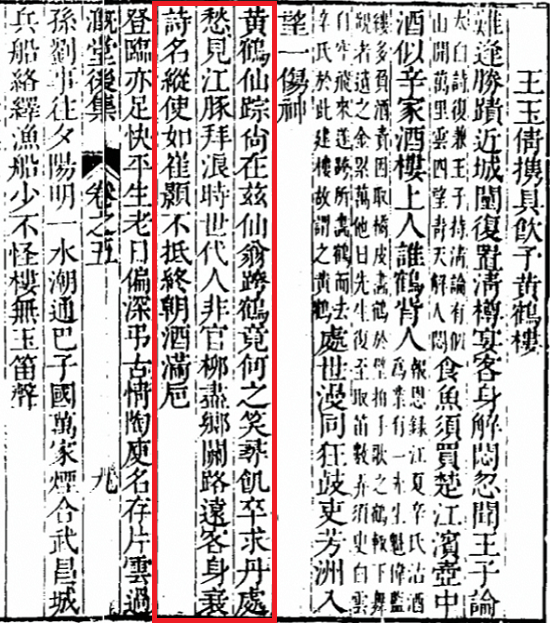 王玉倩携具飲于黃鶴樓
難逢勝蹟近城闉復置清樽宴客身解悶忽聞王子論
太白詩復兼王子持清論有個
山開萬里雲四望青天解人悶
食魚須買楚江濱壺中
酒似辛家酒樓上人誰鶴背人
報恩錄江夏辛氏沽酒
為業有一先生魁偉藍
縷多負酒責因取橘皮畫鶴於壁拍手歌之鶴輙下舞
觀者遺之金累萬他日先生復至取笛數弄須臾白雲
自空飛來遂跨所畫鶴而去
辛氏於此建樓故謂之黃鶴
處世漫同狂鼓吏芳洲入
望一傷神
黃鶴仙踪尙在茲仙翁跨鶴竟何之笑尋飢卒求丹處
愁見江豚拜浪時世代人非官柳盡鄉關路遠客身衰
詩名縱使如崔顥不抵終朝酒滿巵
登臨亦足快平生老日偏深弔古情陶庾名存片雲過
溉堂後集 卷之五 九
孫劉事往夕陽明一水潮通巴子國萬家煙合武昌城
兵船絡繹漁船少不怪樓無玉笛聲